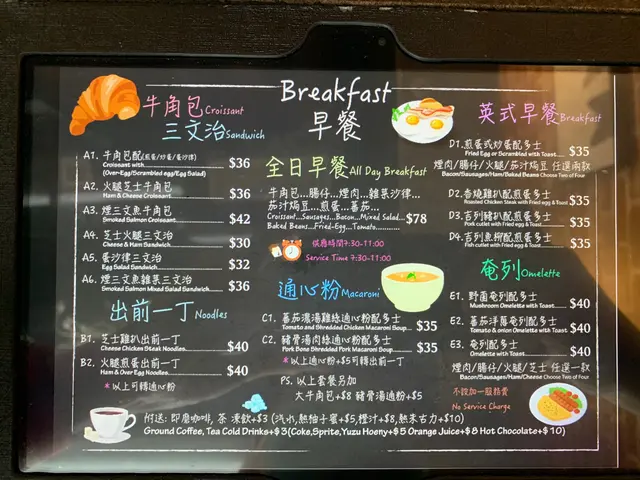 Breakfast
早餐
牛角包Croissant
三文治Sandwich
A1. 牛角包配(煎蛋/炒蛋/蛋沙律) $36
Croissant with
(Over-Egg/Scrambled egg/Egg Salad)
A2. 火腿芝士牛角包 $36
Ham & Cheese Croissant
A3. 煙三文魚牛角包 $42
Smoked Salmon Croissant
A4. 芝士火腿三文治 $30
Cheese & Ham Sandwich
A5. 蛋沙律三文治 $32
Egg Salad Sandwich
A6. 煙三文魚雜菜三文治 $36
Smoked Salmon Mixed Salad Sandwich
出前一丁Noodles
B1. 芝士雞扒出前一丁 $40
Cheese Chicken Steak Noodles
B2. 火腿煎蛋出前一丁 $40
Ham & Over Egg Noodles
*以上可轉通心粉
全日早餐All Day Breakfast
牛角包...腸仔...煙肉...雜菜沙律...
茄汁焗豆...煎蛋...蕃茄...
Croissant...Sausages...Bacon...Mixed Salad... $78
Baked Beans...Fried-Egg...Tomato
供應時間7:30-11:00
Service Time 7:30-11:00
通心粉Macaroni
C1. 蕃茄濃湯雞絲通心粉配多士
Tomato and Shredded Chicken Macaroni Soup $35
C2. 豬骨湯肉絲通心粉配多士
Pork Bone Shredded Pork Macaroni Soup $35
*以上通心粉+$5可轉出前一丁
PS. 以上套餐另加
大牛角包+$8 豬骨湯通粉+$5
英式早餐Breakfast
D1.煎蛋或炒蛋配多士 $35
Fried Egg or Scrambled with Toast
煙肉/腸仔/火腿/茄汁焗豆 任選兩款
Bacon/Sausages/Ham/Baked Beans Choose Two of Four
D2.香燒雞扒配煎蛋多士 $35
Roasted Chicken Steak with Fried egg & Toast
D3.吉列豬扒配煎蛋多士 $35
Pork cutlet with Fried egg & Toast
D4.吉列魚柳配煎蛋多士 $35
Fish cutlet with Fried egg & Toast
奄列Omelette
E1. 野菌奄列配多士 $40
Mushroom Omelette with Toast
E2. 蕃茄洋蔥奄列配多士 $40
Tomato & onion Omelette with Toast
E3. 奄列配多士 $40
Omelette with Toast
煙肉/腸仔/火腿/芝士 任選一款
Bacon/Sausages/Ham/Cheese Choose Two of Four
不設加一服務費
No Service Charge
附送: 即磨咖啡, 茶 凍飲+$3 (汽水,熱柚子蜜+$5,橙汁+$8,熱朱古力+$10)
Ground Coffee, Tea Cold Drinks+$3(Coke,Sprite,Yuzu Hoeny+$5 Orange Juice+$8 Hot Chocolate+$10)